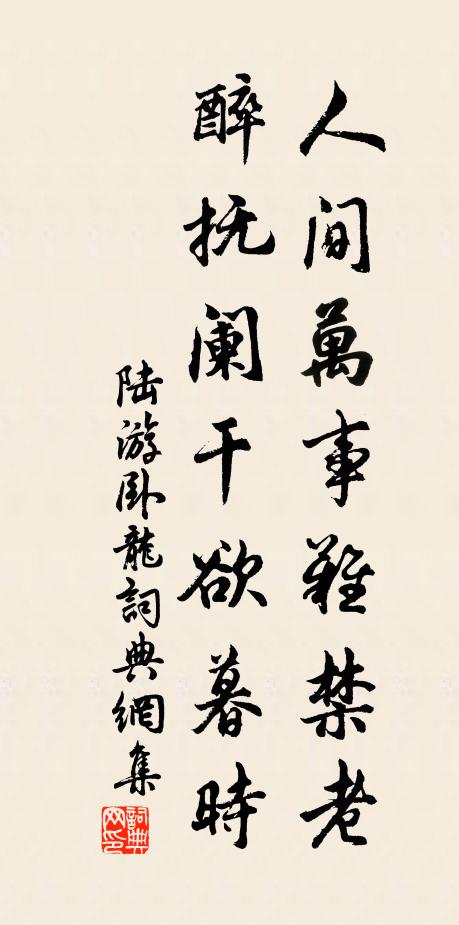 人間萬事難禁老
醉抚阑干欲暮時
陆游卧龍詞典網集
詞典网印